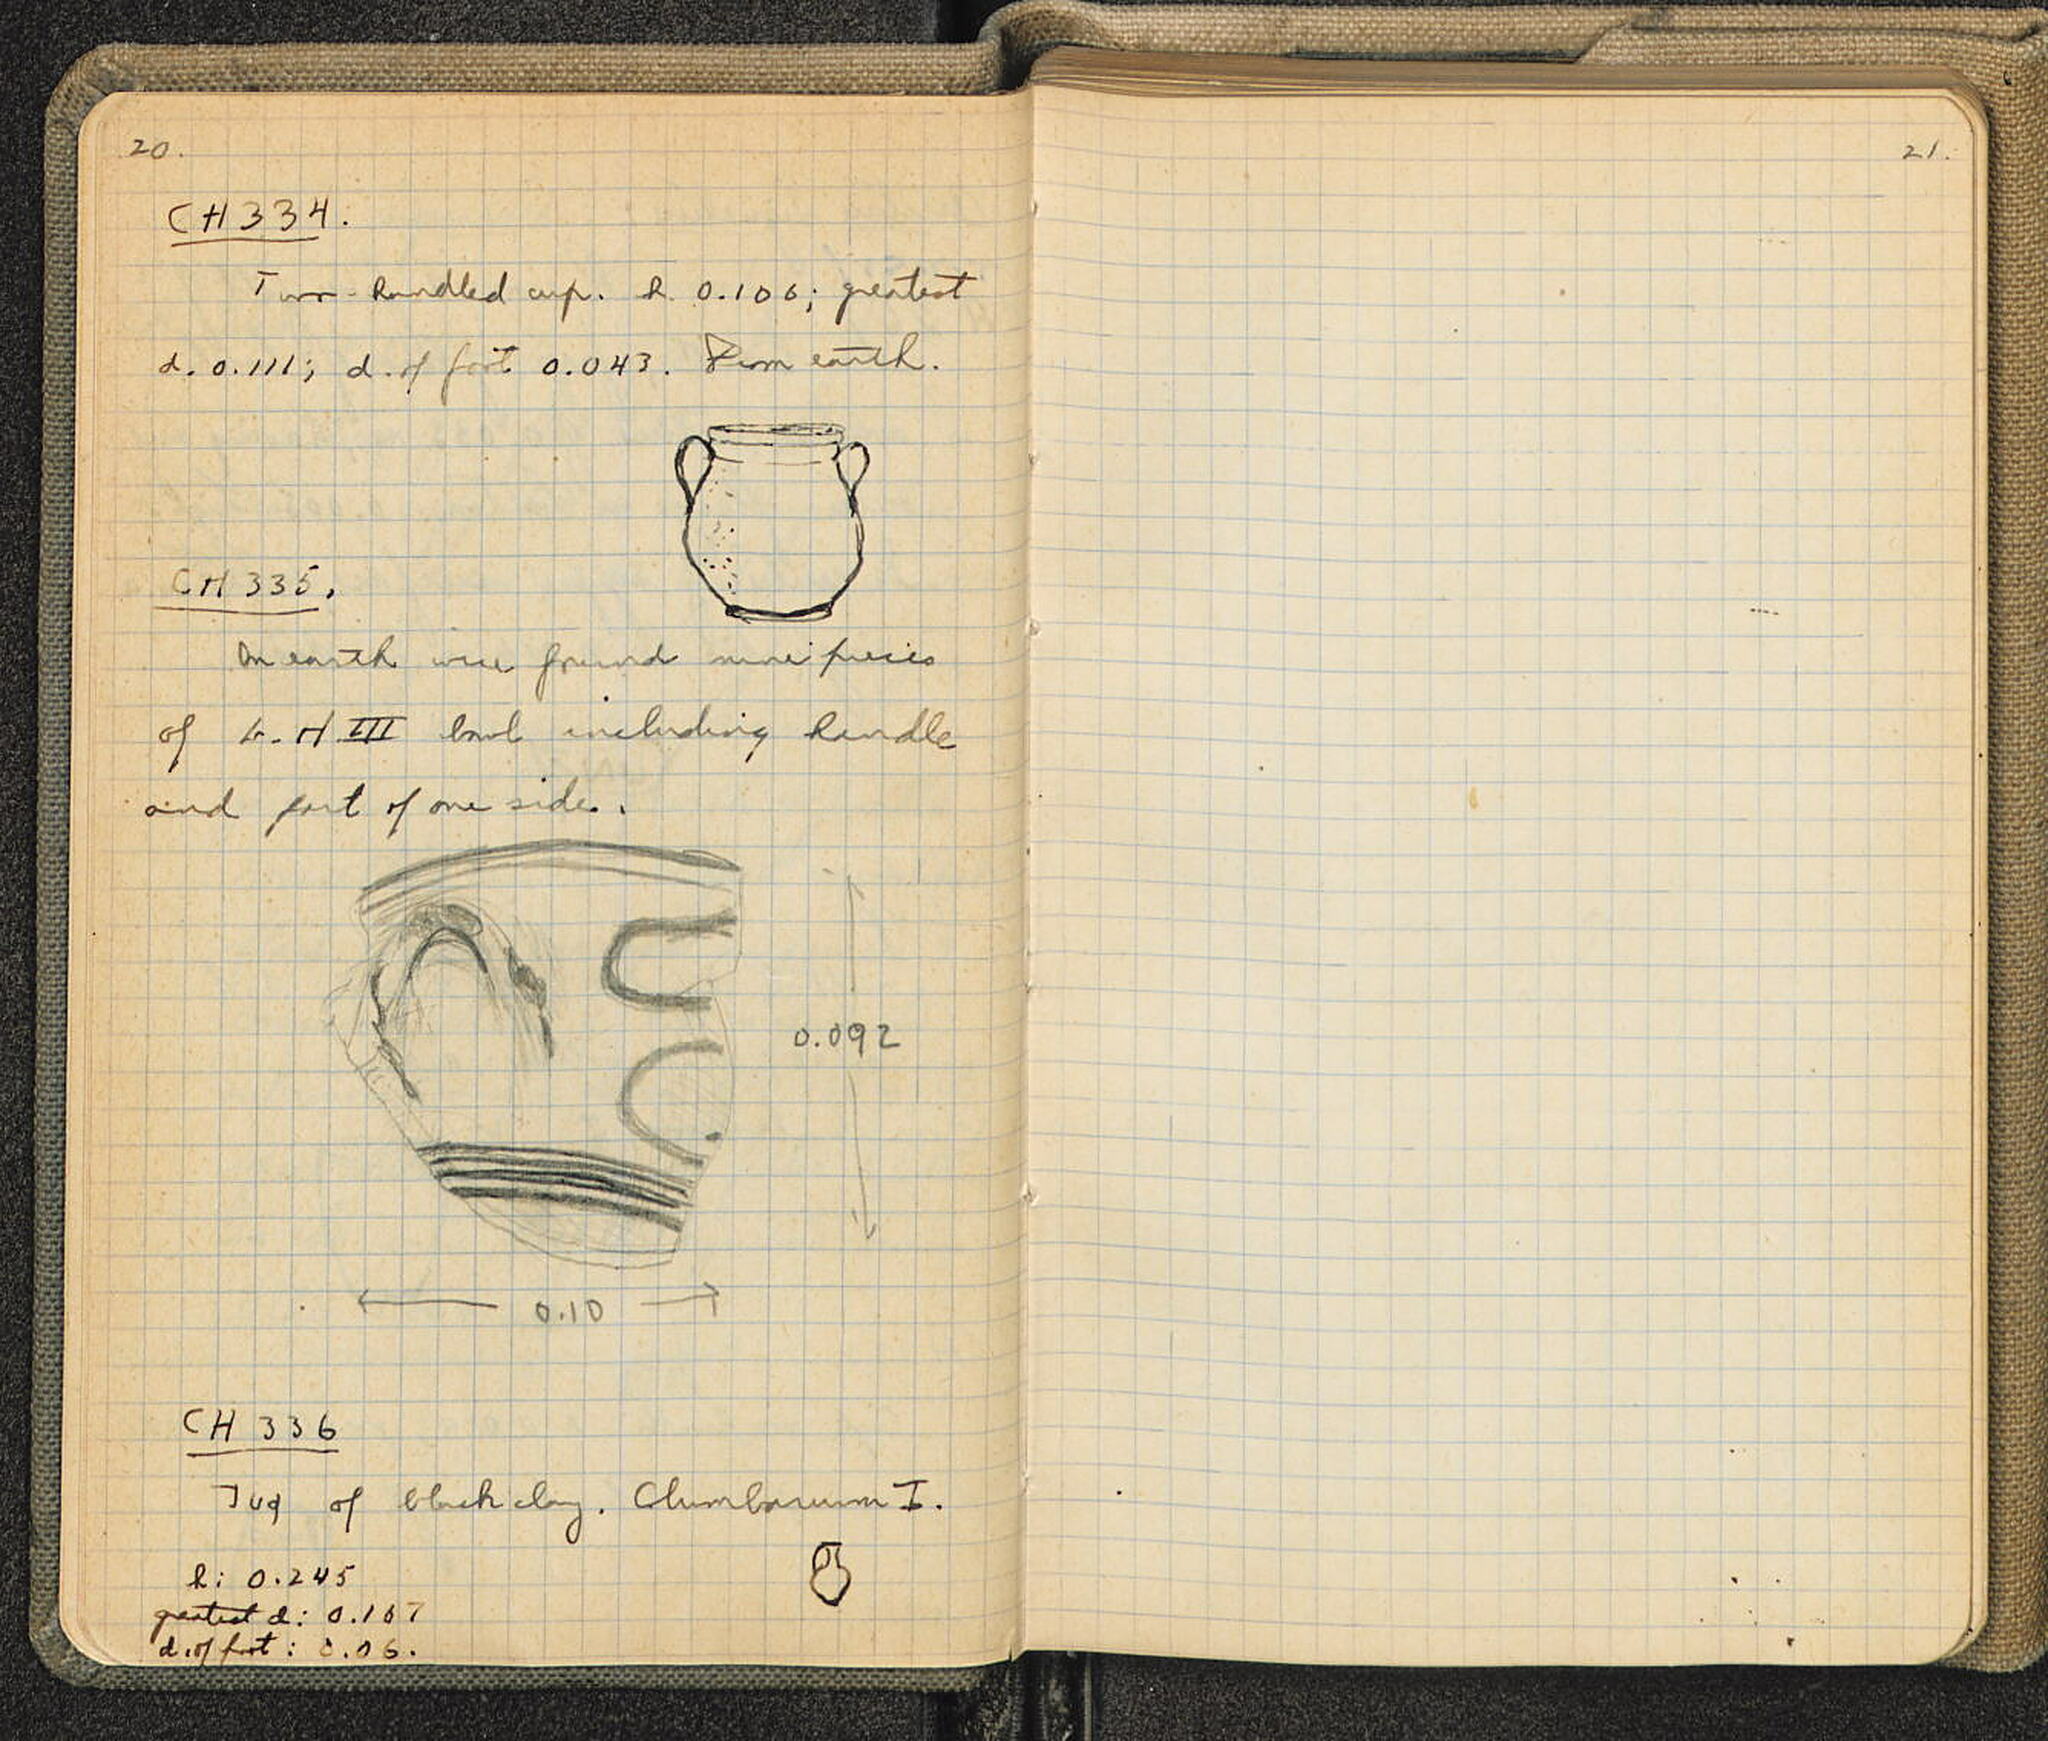 20.
CH 334.
Two-handled cup. h. 0.106; greatest
d. 0.111; d. of foot 0.043. From earth.
CH 335.
In earth were found nine pieces
of L.H III bowl including handle
and part of one side.
0.092
0.10
CH 336
Jug of black clay. Clumbarium I.
h: 0.245
greatest d: 0.167
d. of foot: 0.06.
21.